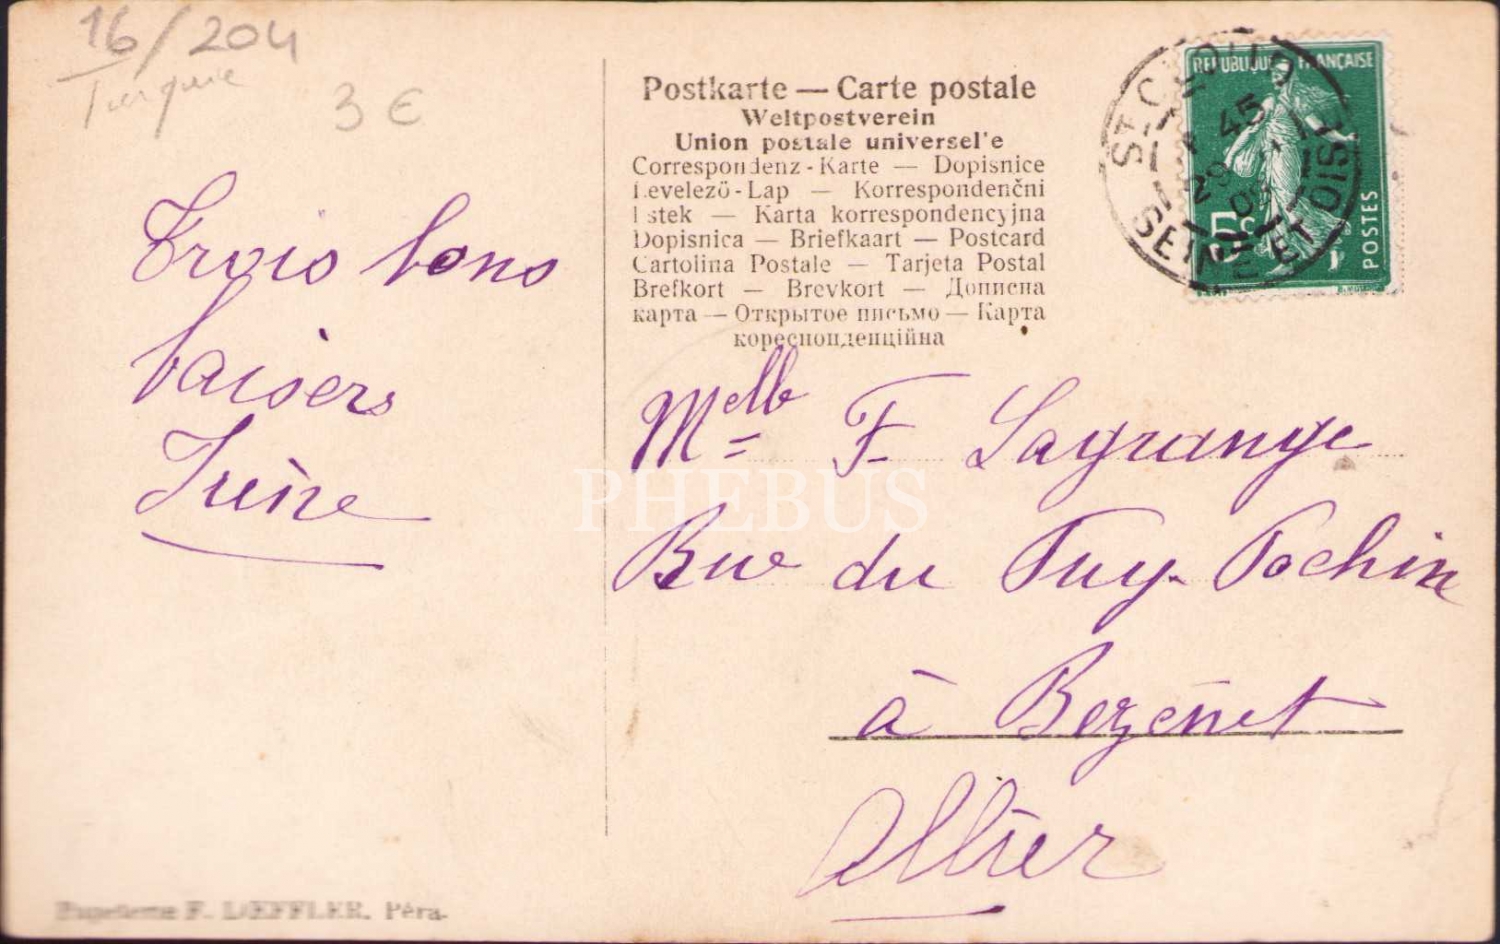 16/204
Turquie
3 €
Postkarte — Carte postale
Weltpostverein
Union postale universel'e
Correspondenz-Karte — Dopisnice
Levelezö-Lap — Korrespondenčni
l stek — Karta korrespondencyjna
Dopisnica — Briefkaart — Postcard
Cartolina Postale — Tarjeta Postal
Brefkort — Brevkort — Дописна
карта — Открытое письмо — Карта
кореспонденційна
REPUBLIQUE FRANÇAISE
5c
POSTES
ST CLOUD
45
29
09
SEINE ET OISE
Trois bons
baisers
Irène
Melle F. Lagrange
Rue du Puy-Pochin
à Bezenet
Allier
PHEBUS
Papeterie F. LŒFFLER. Péra.